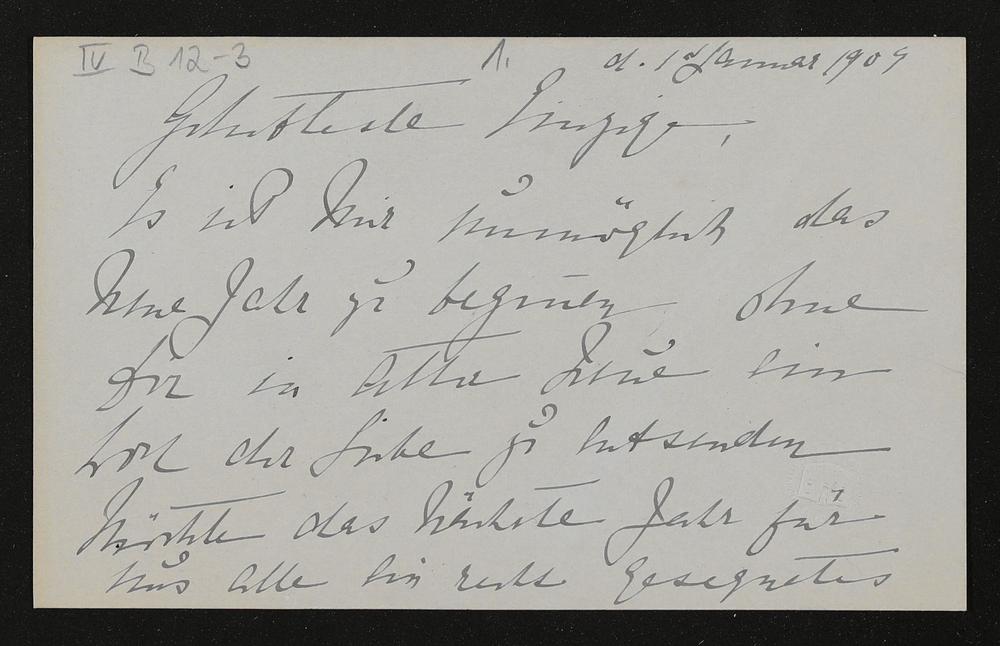 IV B 12-3 1. d. 1ten Januar 1909
Geliebteste Einzige,
Es ist Mir unmöglich das
Neue Jahr zu begin̄en, ohne
Dir in alter Treue ein
Wort der Liebe zu entsenden
Möchte das Nächste Jahr für
uns alle ein recht gesegnetes